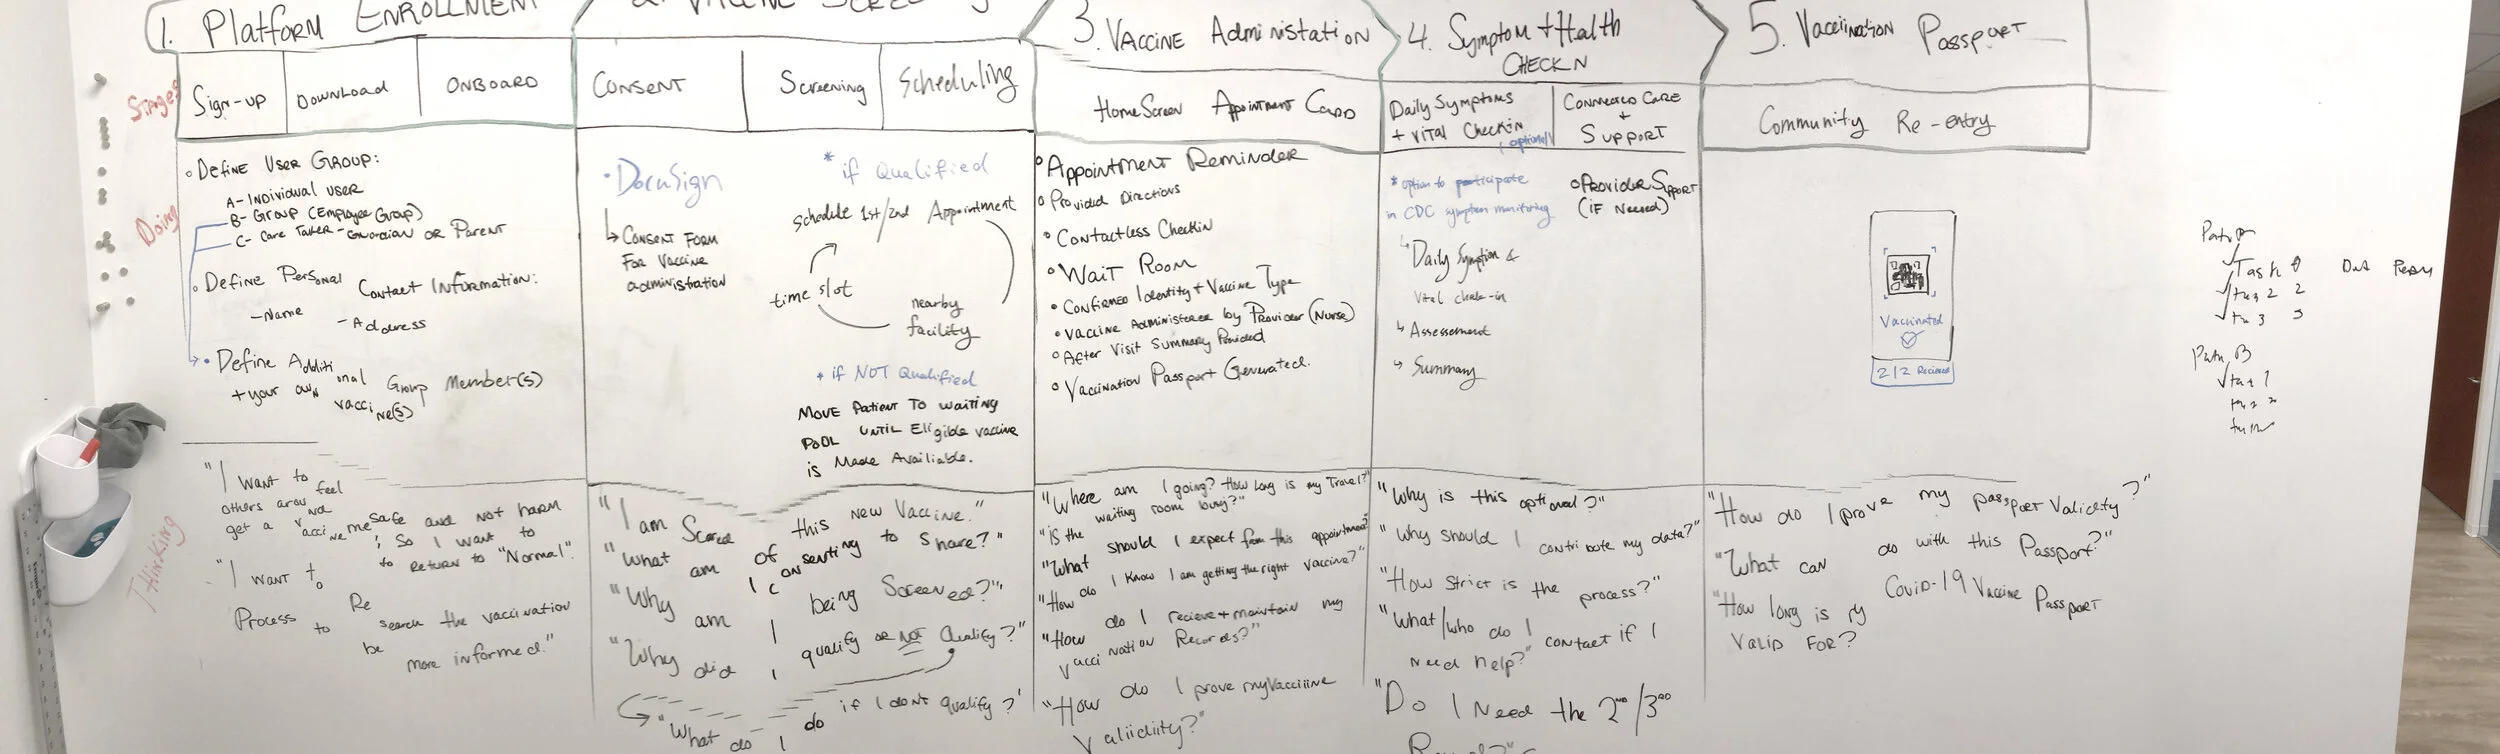 1. Platform Enrollment
2. Vaccine Screening
3. Vaccine Administation
4. Symptom + Health
CHECKN
5. Vacciination Passport
Stages
Sign-up
Download
ONBOARD
CONSENT
Screening
Scheduling
HomeScreen Appointment Card
Daily Symptoms
+ Vital Checkin
(optional)
Connected Care
+
Support
Community Re-entry
Doing
Define User Group:
A- Individual user
B- Group (Employee Group)
C- Care Taker - Guardian or Parent
Define Personal Contact Information:
- Name
- Address
Define Additional Group Member(s)
+ your own vaccine(s)
DocuSign
Consent Form
For Vaccine
administration
* if Qualified
schedule 1st/2nd Appointment
time slot
nearby
facility
* if NOT Qualified
Move Patient To waiting
Pool until Eligible vaccine
is Made Availiable.
Appointment Reminder
Provided Directions
Contactless Checkin
Wait Room
Confirmed Identity + Vaccine Type
Vaccine Administerer by Provider (Nurse)
After Visit Summary Provided
Vaccination Passport Generated.
* option to participate
in CDC symptom monitoring
Daily Symption &
Vital check-in
Assessement
Summary
Provider Support
(if Needed)
Vaccinated
2/2 Recieved
Path A
Task 1
2
3
Path B
Thinking
"I want to feel safe and not harm
others around me, so I want to
get a vaccine to return to "Normal".
"I want to Research the vaccination
Process to be more informed."
"I am Scared of this new Vaccine."
"What am I consenting to share?"
"Why am I being Screened?"
"Why did I qualify or NOT Qualify?"
"What do I do if I dont qualify?"
"Where am I going? How long is my Travel?"
"is the waiting room long?"
"What should I expect from this appointment?"
"How do I know I am getting the right vaccine?"
"How do I recieve + maintain my
vaccination Records?"
"How do I prove my Vacciiine
Valiidiity?"
"Why is this optional?"
"Why should I contribute my data?"
"How strict is the process?"
"What/who do I contact if I
need help?"
"Do I Need the 2nd/3rd
"How do I prove my passport Validity?"
"What can I do with this Passport?"
"How long is my Covid-19 Vaccine Passport
Valid For?